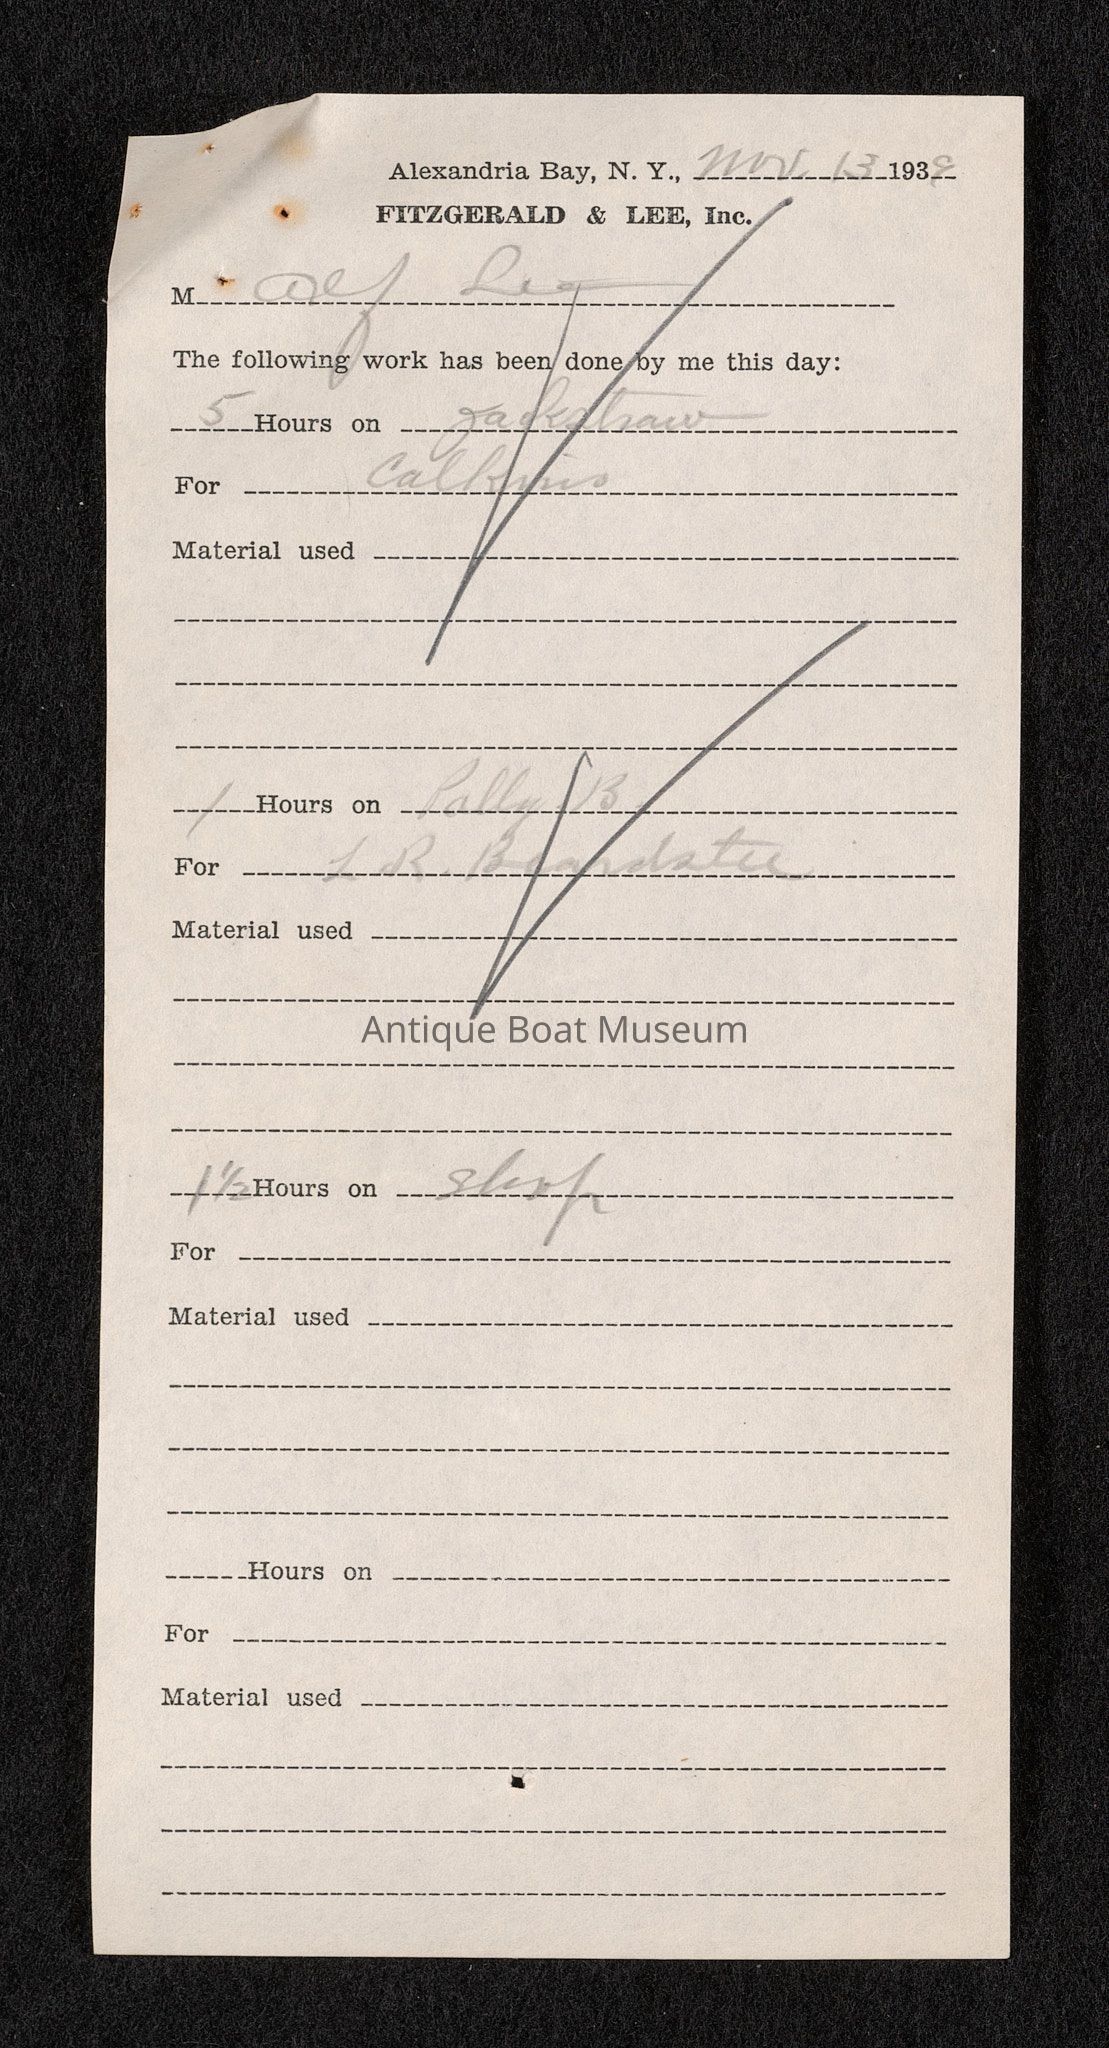 Alexandria Bay, N. Y., Nov. 13 1939
FITZGERALD & LEE, Inc.
M Alf Lee
The following work has been done by me this day:
5 Hours on Jackstraw
For Calkins
Material used
1 Hours on Polly B.
For L R. Beardslee
Material used
Antique Boat Museum
1 1/2 Hours on shop
For
Material used
Hours on
For
Material used